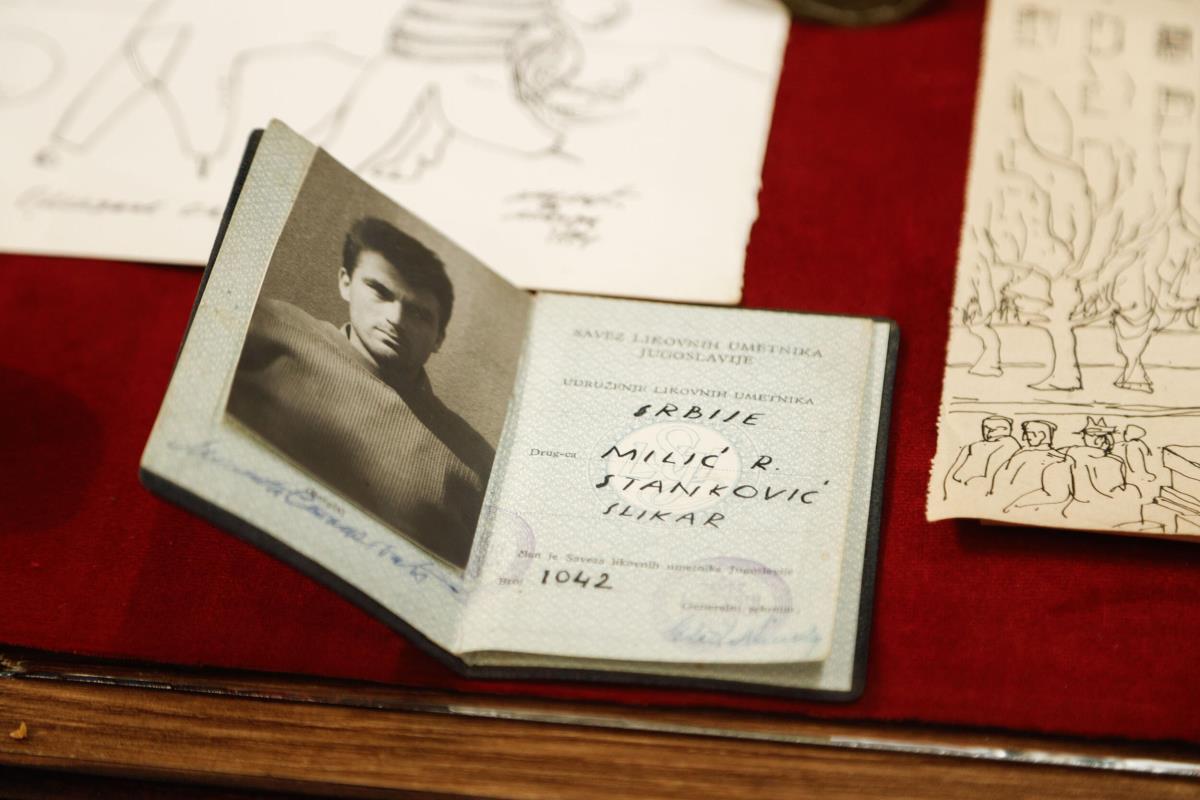 SAVEZ LIKOVNIH UMETNIKA
JUGOSLAVIJE
UDRUŽENJE LIKOVNIH UMETNIKA
SRBIJE
Drug-ca MILIĆ R.
STANKOVIĆ
SLIKAR
član je Saveza likovnih umetnika Jugoslavije
Broj 1042
Generalni sekretar,